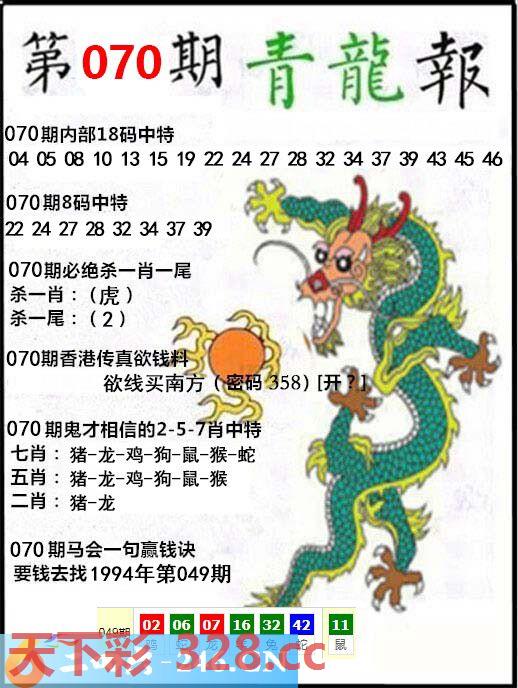 第070期青龍報
070期内部18码中特
04 05 08 10 13 15 19 22 24 27 28 32 34 37 39 43 45 46
070期8码中特
22 24 27 28 32 34 37 39
070期必绝杀一肖一尾
杀一肖：（虎）
杀一尾：（2）
070期香港传真欲钱料
欲线买南方（密码 358）[开？]
070期鬼才相信的2-5-7肖中特
七肖：猪-龙-鸡-狗-鼠-猴-蛇
五肖：猪-龙-鸡-狗-鼠-猴
二肖：猪-龙
070期马会一句赢钱诀
要钱去找1994年第049期
049期 02 06 07 16 32 42 11
鼠
天下彩-328.cc